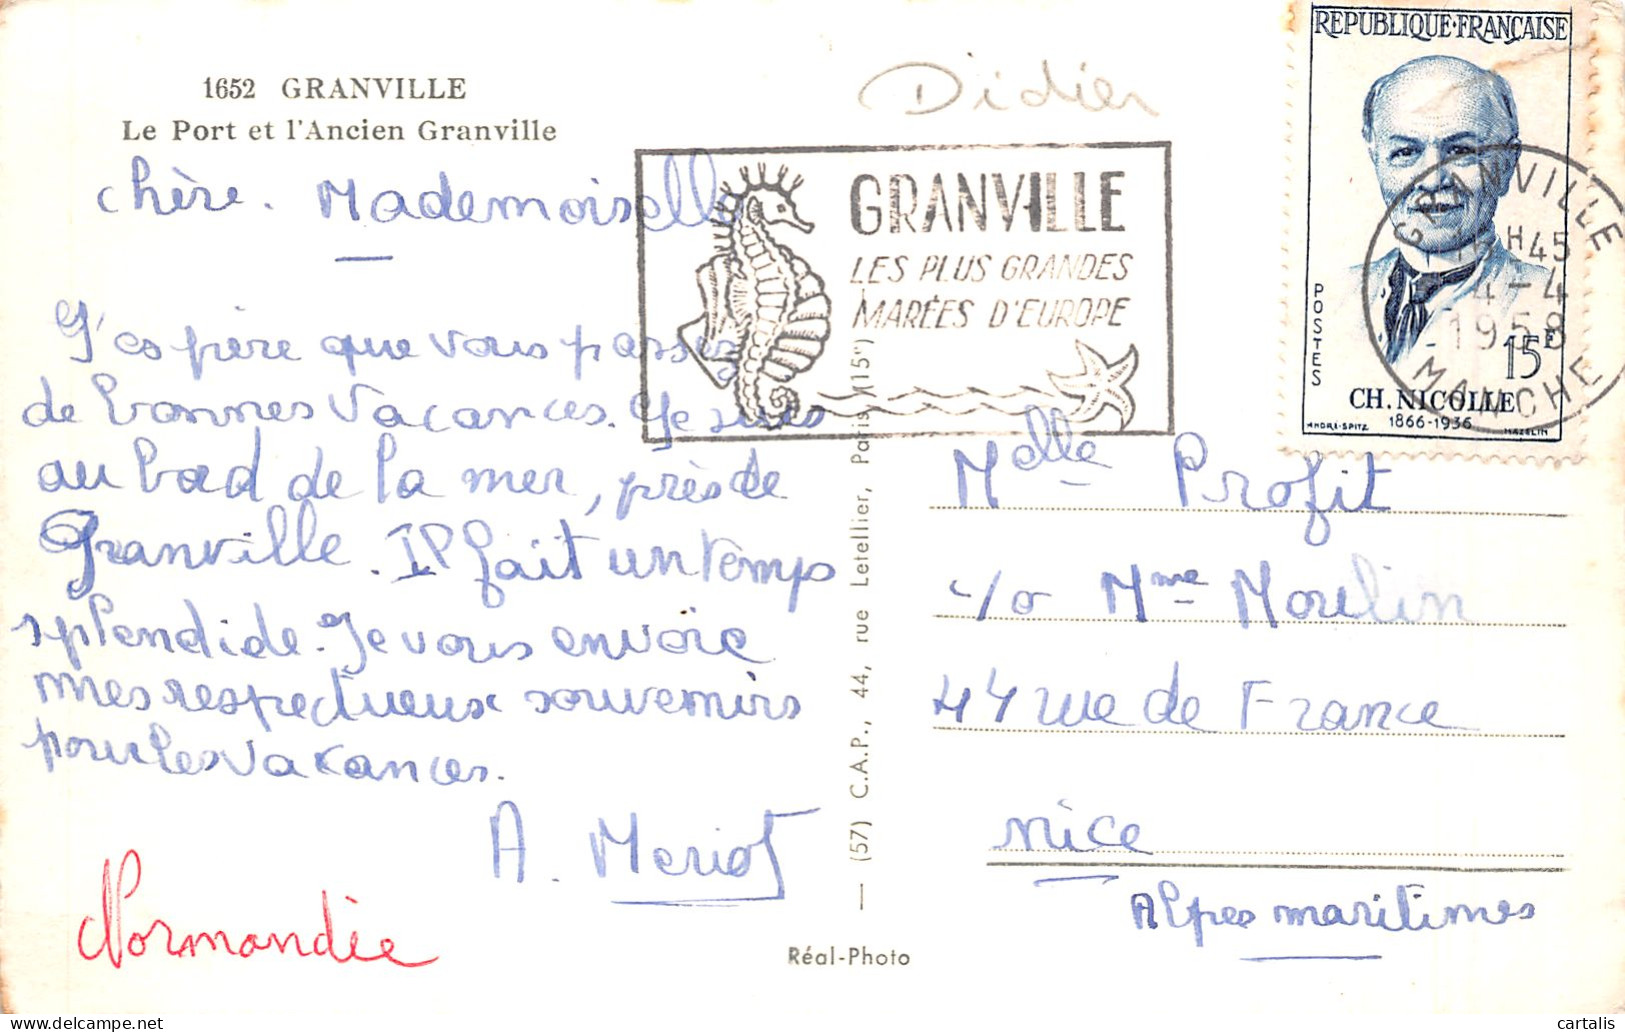 1652 GRANVILLE
Le Port et l'Ancien Granville
chère. Mademoiselle
J'espère que vous passez
de bonnes vacances. Je suis
au bord de la mer, près de
Granville. Il fait un temps
splendide. Je vous envoie
mes respectueux souvenirs
pour les vacances.
A. Meriot
Normandie
Didier
GRANVILLE
LES PLUS GRANDES
MARÉES D'EUROPE
REPUBLIQUE·FRANÇAISE
POSTES
15F
CH. NICOLLE
1866-1936
ANDRÉ-SPITZ
MAZELIN
GRANVILLE
H45
4-4
1958
MANCHE
(57) C.A.P., 44, rue Letellier, Paris (15e)
Réal-Photo
Melle Profit
c/o Mme Moulin
44 rue de France
nice
Alpes maritimes
cartalis
delcampe.net